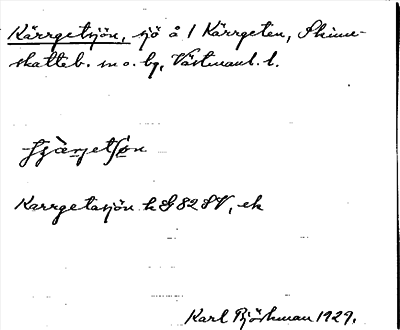 Kärrgetsjön, sjö å 1 Kärrgeten, Skinn-
skatteb. sn o. bg, Västmanl. l.
Karrgetasjön h G 82 SV, ek
Karl Björkman 1929.